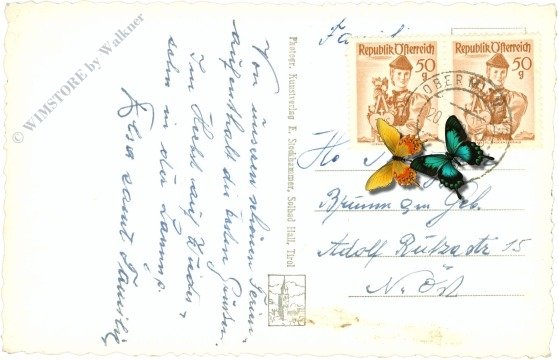 © WIMSTORE by Walkner
Von unserem schönen Ferien-
aufenthalt die besten Grüsse.
Im Herbst auf Wieder-
sehn in der
samt Familie
Photogr. Kunstverlag E. Stockhammer, Solbad Hall, Tirol
Republik Österreich
50
g
Republik Österreich
50
g
OBERM
20.
Familie
Brunn am Geb.
Adolf
15
N. Öst